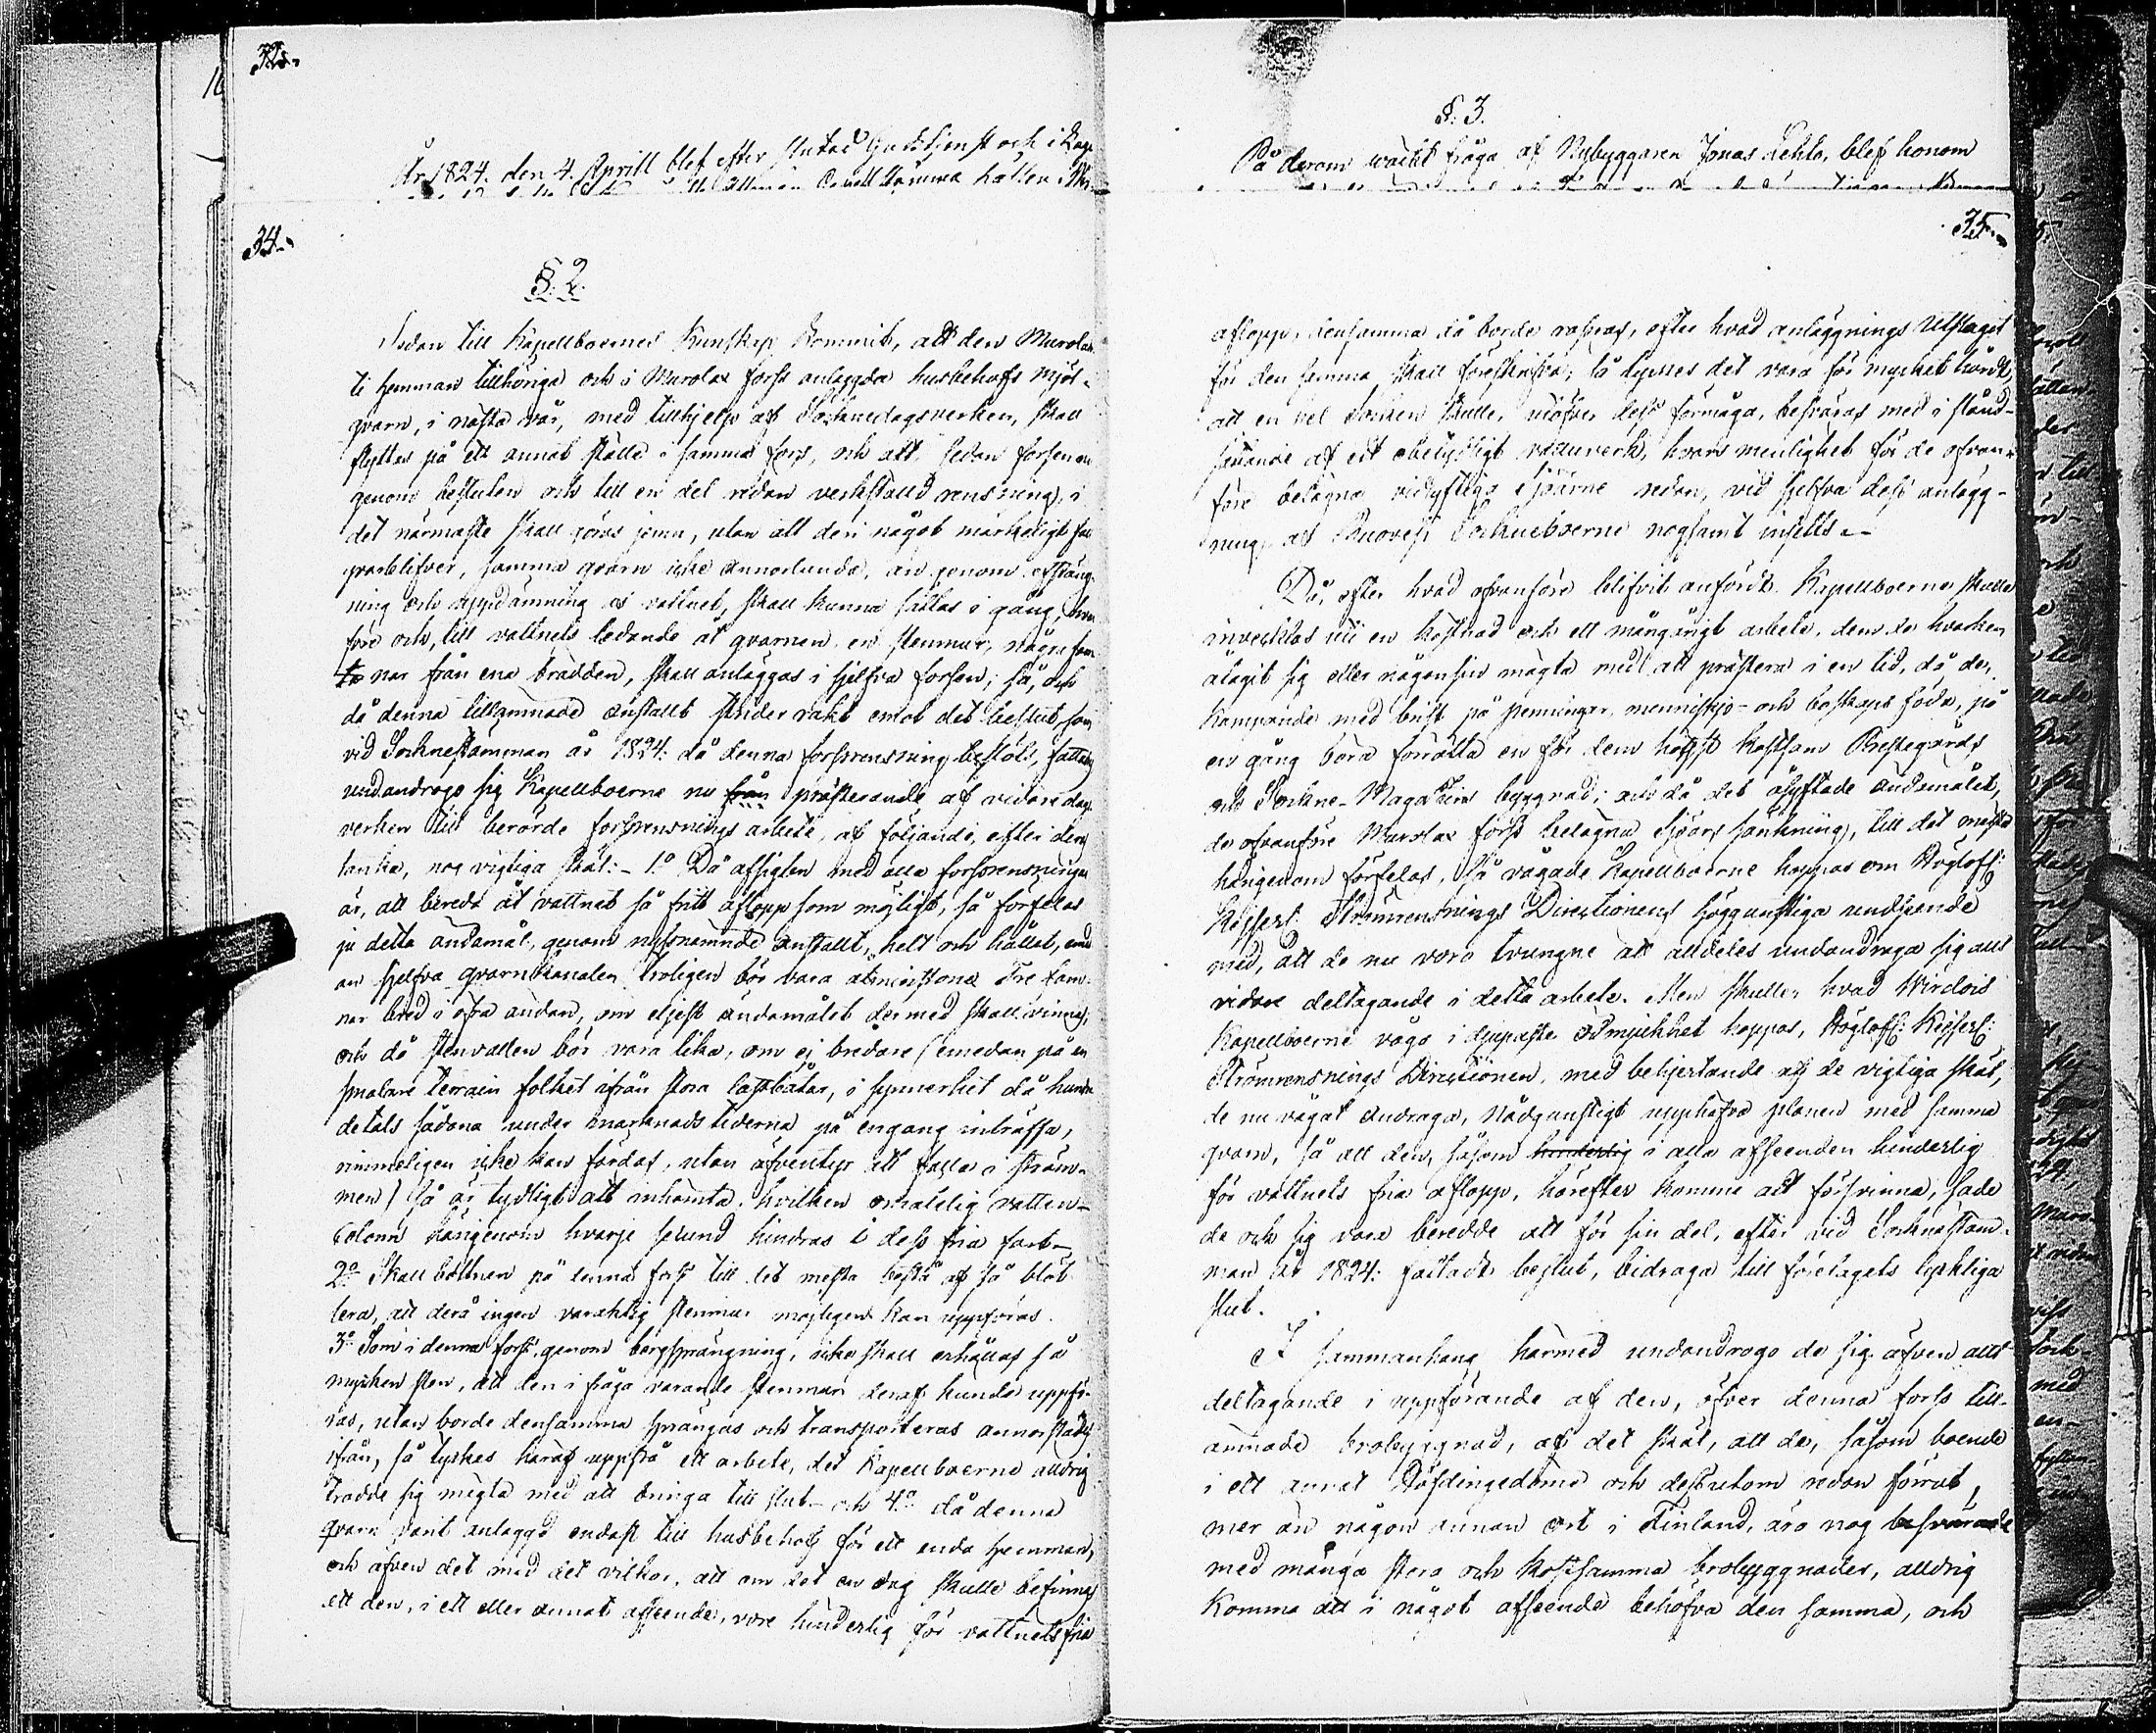 32.
År 1824. den 4. Aprill blef efter slutad Gudstjenst och i
34.
§. 2.
Sedan till Kapellboernes Kunskap kommit, att den Murolak
ti hemman tillhöriga och i Murolax forss anlaggda husbehofs mjöl-
qvarn, i nästa vår, med tillhjelp af Sochnedagsverken, skall
flyttas på ett annat ställe i samma forss, och att sedan forssen nu
genom besluten och till en del redan verkställd rensning, i
det närmaste skall göras jemn, utan att den något märkeligt fall
qvarblifver, samma qvarn icke annorlunda, än genom afstäng-
ning och uppdämning af vattnet, skall kunna sättas i gång, hvar
före och, till vattnets ledande åt qvarnen, en stenmur, några fam
nar från ena brädden, skall anläggas i sjelfva forssen; så, och
då denna tillämnade anstallt strider rakt emot det beslut som
vid Sochnestämman år 1824. då denna forssrensning beslöts, fattades
undandrogo sig Kapellboerne nu från præsterande af vidare dags
verken till berörde forssrensnings arbete, af följande, efter deras
tanka, nog vigtiga skäl: - 1:o Då afsigten med alla forssrensningar
är, att bereda åt vattnet så fritt aflopp som möjligt, så förfelas
ju detta ändamål, genom nyssnämnde anstallt, helt och hållet, emed
an sjelfva qvarnkanalen troligen bör vara åtminstone Tre fam-
nar bred i öfra ändan, om eljest ändamålet dermed skall vinnas,
och då stenvallen bör vara lika, om ej bredare (emedan på en
smalare terrain folket ifrån stora lassbåtar, i synnerhet då hundra
detals sådana under marknadstiderna på engang inträffa,
rimmeligen icke kan fördas, utan äfventyr att falla i ström-
men) så är tydligt att inhämta, hvilken omätelig vatten-
Colonn härigenom hvarje secund hindras i dess fria fart -
2:o Skall bottnen på denna forss till det mesta bestå af så blöt
lera, att derå ingen varaktig stenmur möjligen kan uppföras.
3:o Som i denna forss, genom bergsprängning, icke skall erhållas så
mycken sten, att den i fråga varande stenmuren deraf kunde uppfö-
ras, utan borde densamma sprängas och transporteras annorstädes
ifrån, så tyckes häraf uppstå ett arbete, det Kapellboerne alldrig
trodde sig mägta med att bringa till slut - och 4:o då denna
qvarn varit anlaggd endast till husbehof för ett enda hemman,
och äfven det med det vilkor, att om det en dag skulle befinnas
att den, i ett eller annat afseende, vore hinderlig för vattnets fria
§. 3.
På derom väckt fråga af Nybyggaren Jonas Lehto, blef honom
35.
aflopp, densamma då borde raseras, efter hvad anläggnings Utslaget
för den samma skall föreskrifva; så tyckes det vara för mycket hårdt,
att en hel Sochen skulle, utöfver dess förmåga, besväras med i stånd-
sättande af ett obetydligt vattuverk, hvars menlighet för de ofvan-
före belägna vidlyftiga Sjöarne redan, vid sjelfva dess anlägg-
ning, af Ruovesi Sochneboerne nogsamt insetts. -
Då, efter hvad ofvanföre blifvit anfördt Kapellboerne skulle
invecklas uti en kostnad och ett mångårigt arbete, dem de hvarken
åtagit sig eller någonsin mägta med att præstera i en tid, då de,
kämpande med brist på penningar, menniskjo- och boskaps föda, på
en gång böra förrätta en för dem högst kostsam Prestegårds
och Sockne-Magazins byggnad; och då det åsyftade ändamålet,
de ofvanföre Murolax forss belägna Sjöars sänkning, till det mesta
härigenom förfelas, så vågade Kapellboerne hoppas om Höglofl:
Kejserl: Strömrensnings Directionens höggunstiga undseende
med, att de nu voro tvungne att alldeles undandraga sig allt
vidare deltagande i detta arbete. Men skulle, hvad Wirdois
Kapellboerne våga i djupaste ödmjukhet hoppas, Höglofl: Kejserl:
Strömrensnings Directionen, med behjertande af de vigtiga skäl,
de nu vågat andraga, nådgunstigt upphäfva planen med samma
qvarn, så att den, såsom hinderlig i alla afseenden hinderlig
för vattnets fria aflopp, härefter komme att försvinna, sade
de och sig vara beredde att för sin del, efter vid Sochnestäm-
man år 1824. fattadt beslut, bidraga till företagets lyckliga
slut.
I sammanhang härmed undandrogo de sig äfven allt
deltagande i uppförande af den, öfver denna forss till-
ämnade brobyggnad, af det skäl, att de, såsom boende
i ett annat Höfdingedöme och dessutom redan förrut,
mer än någon annan ort i Finland, äro nog besvärade
med många stora och kostsamma brobyggnader, alldrig
komma att i något afseende behöfva den samma, och